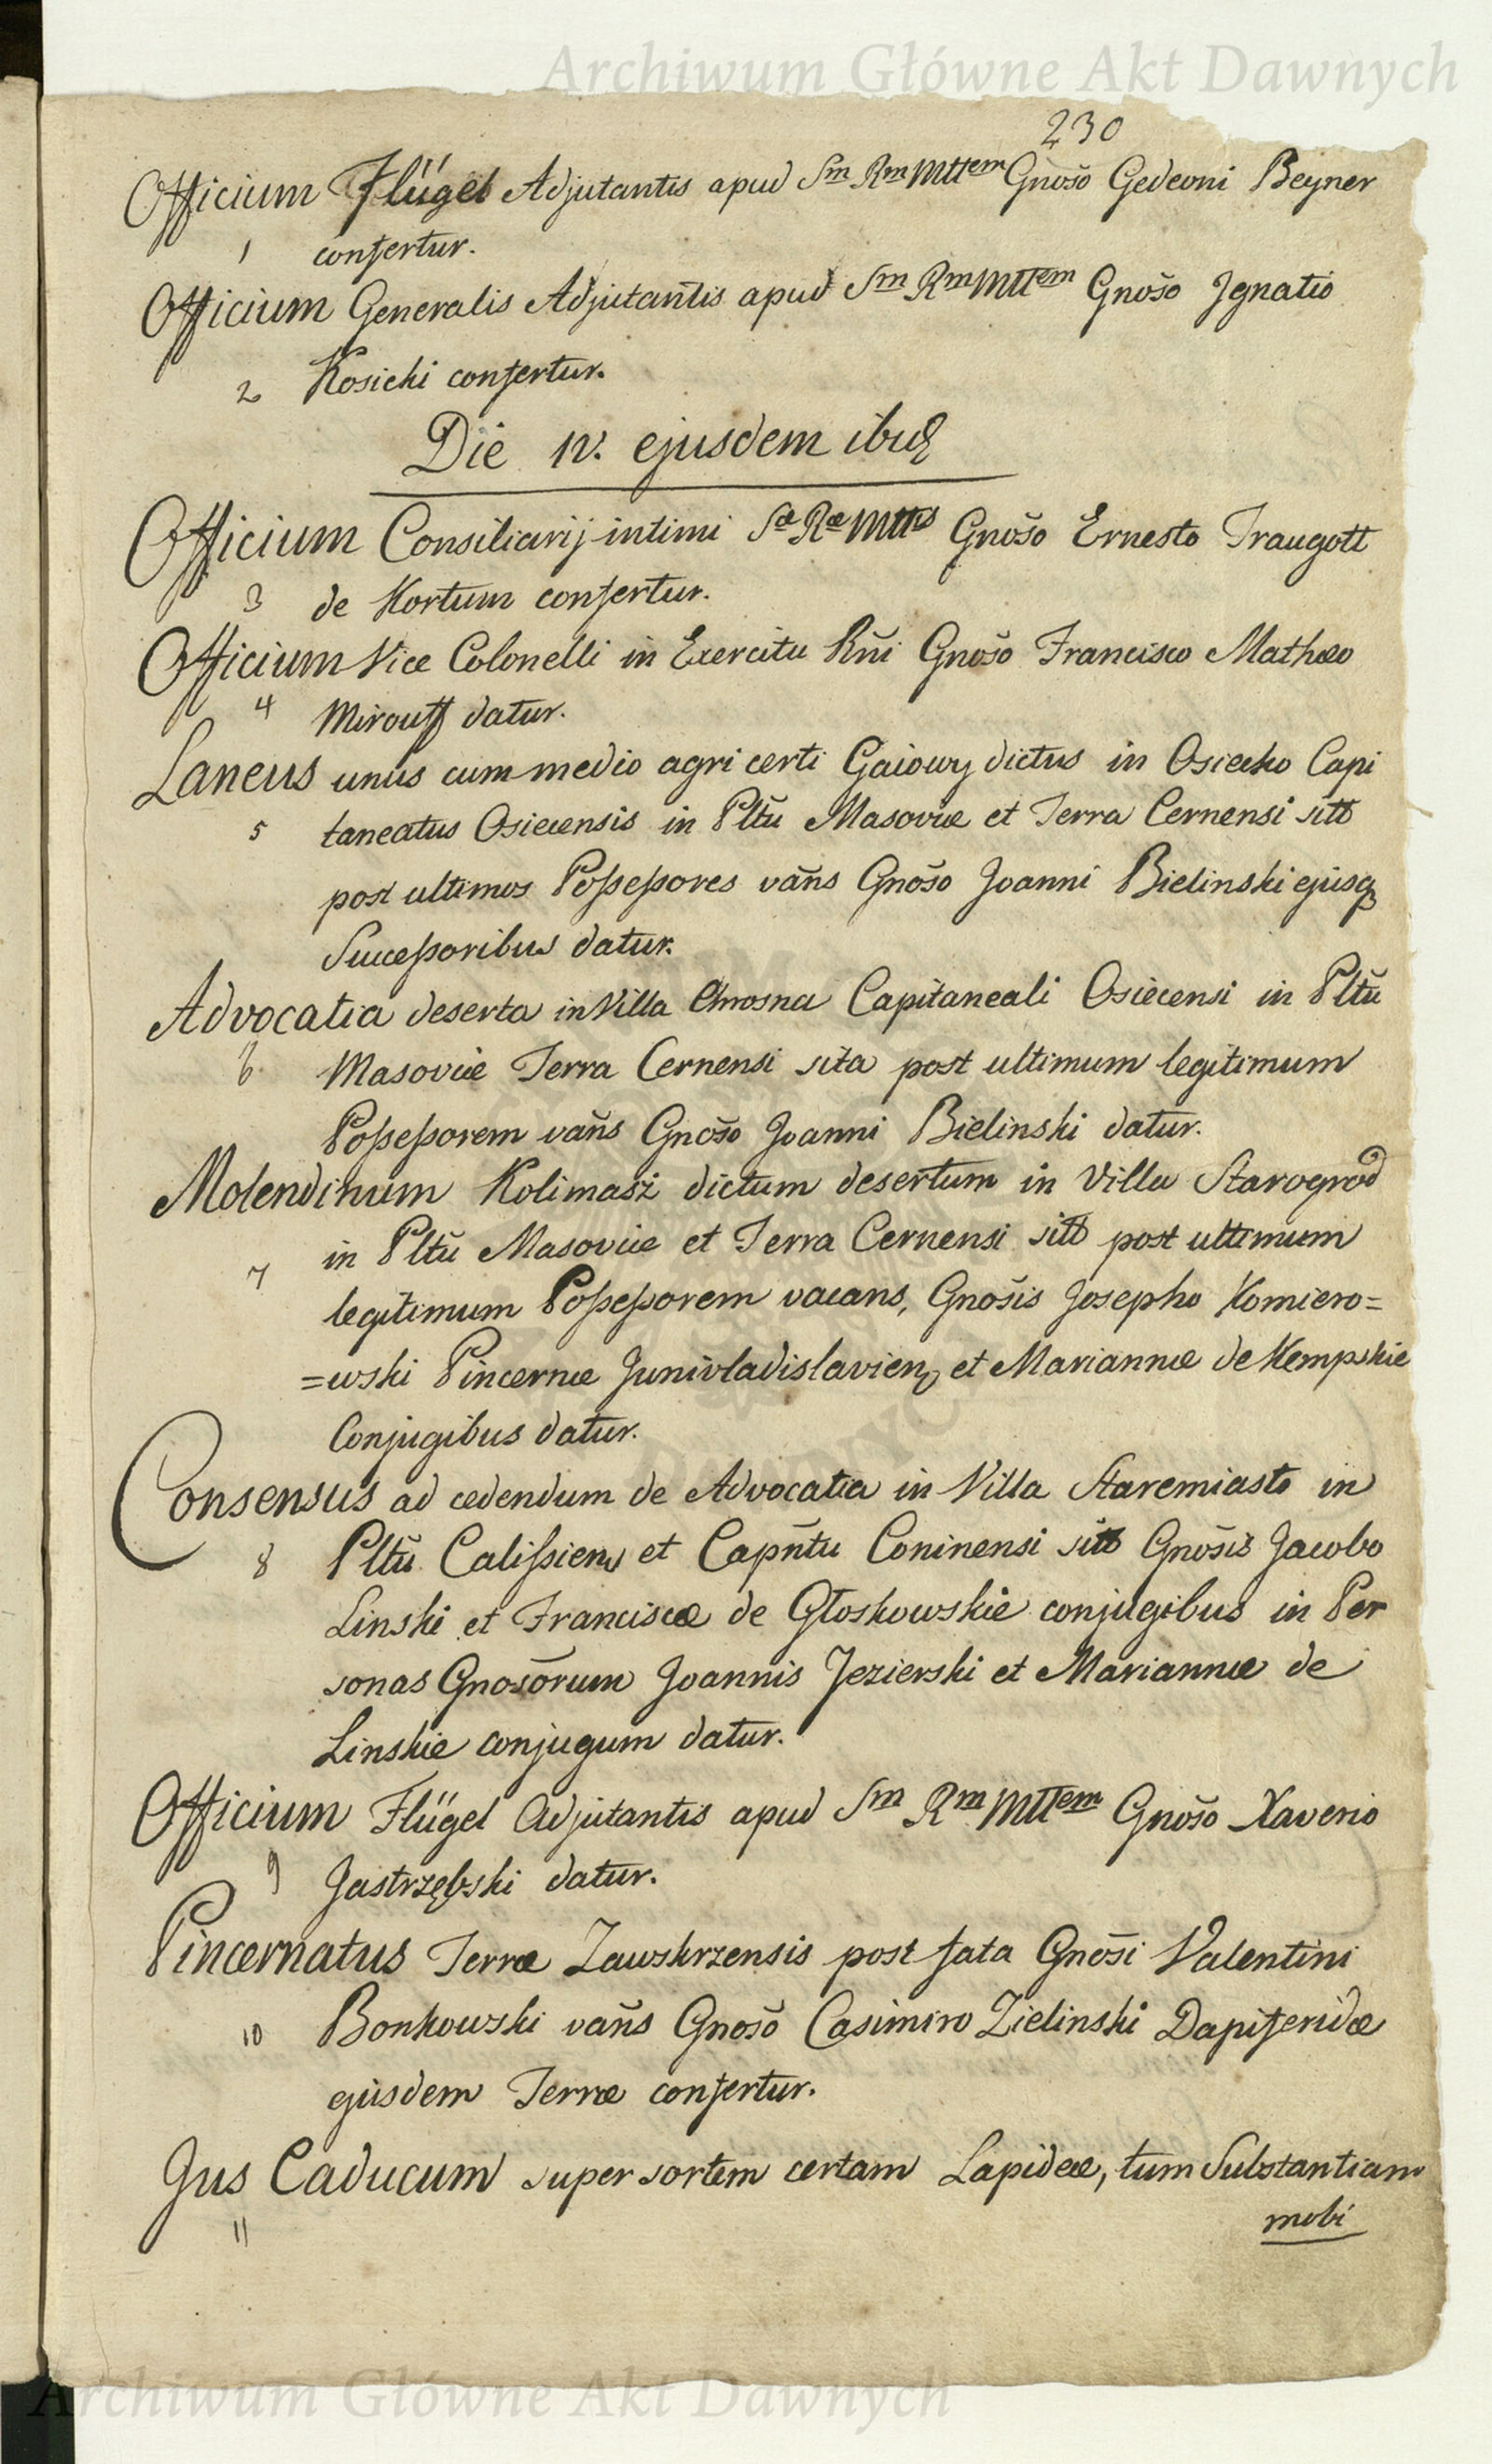 Archiwum Główne Akt Dawnych
230
Officium Flügel Adjutantis apud Sm Rm Mttem Gnoso Gedeoni Beyner
1 confertur.
Officium Generalis Adjutantis apud Sm Rm Mttem Gnoso Ignatio
2 Kosicki confertur.
Die 12. ejusdem ibid
Officium Consiliarij intimi Sæ Ræ Mttis Gnoso Ernesto Traugott
3 de Kortum confertur.
Officium Vice Colonelli in Exercitu Rñi Gnoso Francisco Mathæo
4 Mirouff datur.
Laneus unus cum medio agri certi Gaiowy dictus in Osiecko Capi
5 taneatus Osiecensis in Pltũ Masoviæ et Terra Cernensi sitt
post ultimos Poßeßores vañs Gnoso Joanni Bielinski ejusq
Succeßoribus datur.
Advocatia deserta in Villa Chrosna Capitaneali Osiecensi in Pltũ
6 Masoviæ Terra Cernensi sita post ultimum legitimum
Poßeßorem vañs Gnoso Joanni Bielinski datur.
Molendinum Kolimasz dictum desertum in Villa Starogrod
7 in Pltũ Masoviæ et Terra Cernensi sitt post ultimum
legitimum Poßeßorem vacans, Gnosis Josepho Komiero=
=wski Pincernæ Junivladislavien et Mariannæ de Kempskie
Conjugibus datur.
Consensus ad cedendum de Advocatia in Villa Staremiasto in
8 Pltũ Calißien et Capñtu Coninensi sitt Gnosis Jacobo
Linski et Franciscæ de Głoskowskie conjugibus in Per
sonas Gnosorum Joannis Jezierski et Mariannæ de
Linskie conjugum datur.
Officium Flügel Adjutantis apud Sm Rm Mttem Gnoso Xaverio
9 Jastrzębski datur.
Pincernatus Terræ Zawskrzensis post fata Gnosi Valentini
10 Bonkowski vañs Gnoso Casimiro Zielinski Dapiferidæ
ejusdem Terræ confertur.
Jus Caducum super sortem certam Lapideæ, tum Substantiam
11
mobi
Archiwum Główne Akt Dawnych